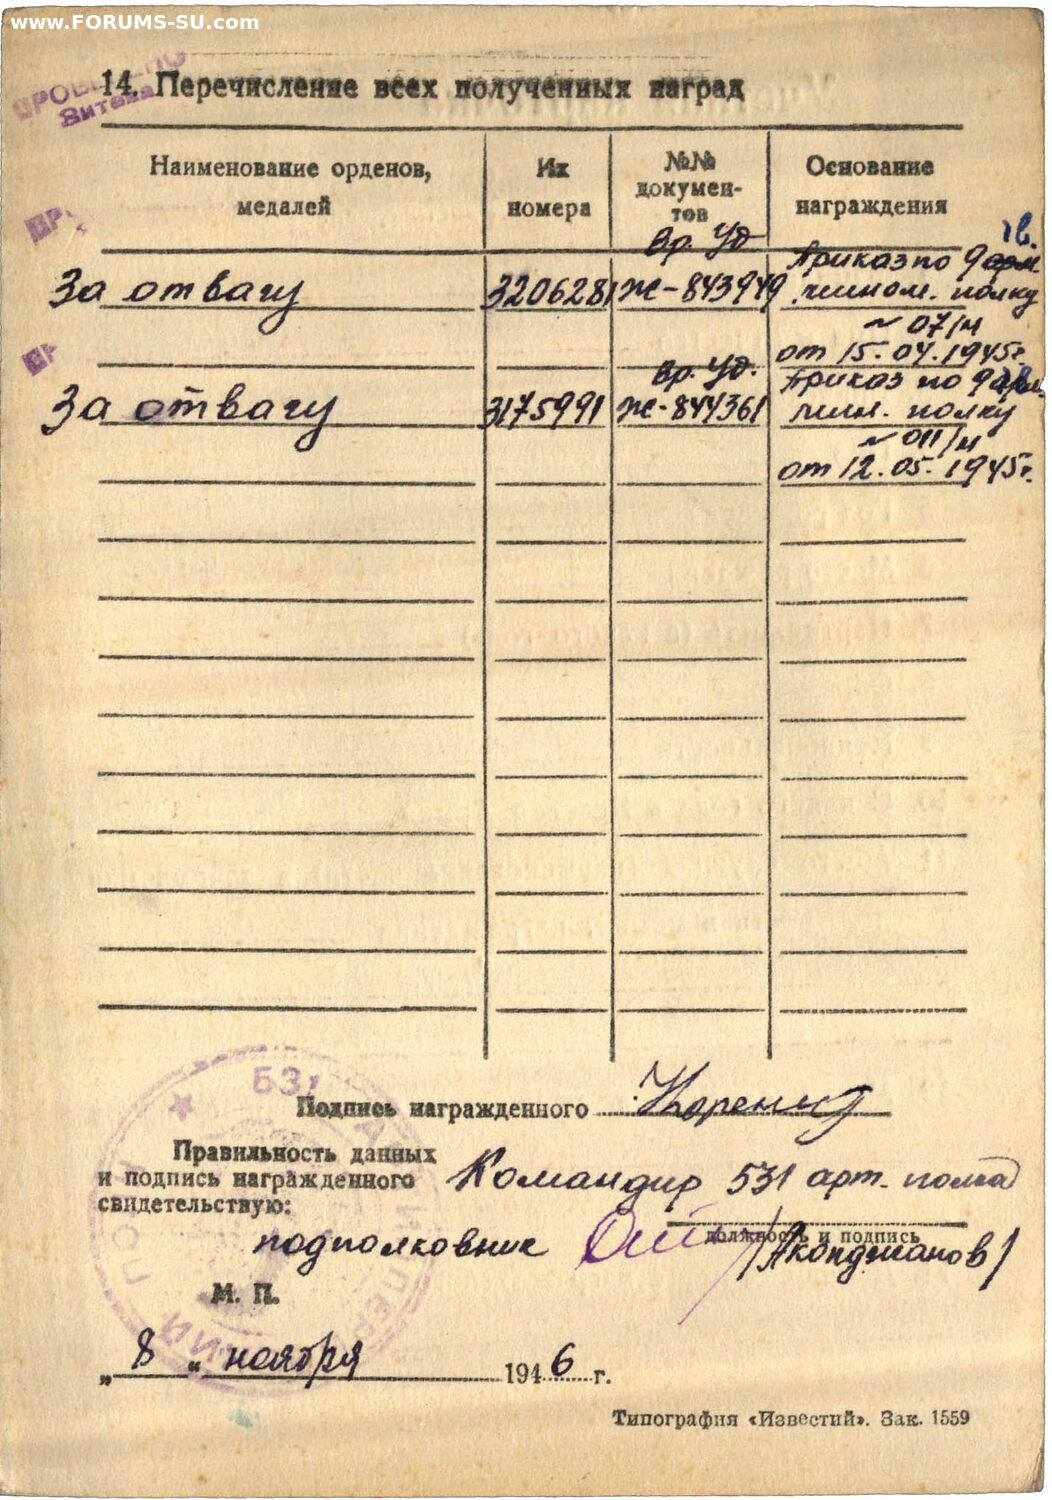 www.FORUMS-SU.com
14. Перечисление всех полученных наград
Наименование орденов, медалей
Их номера
№№ докумен-
тов
Основание награждения
Вр. Уд
За отвагу 3206281 Ж-843949 Приказ по 9
полку
~ 07/н
от 15.04.1945г.
Вр. Уд.
За отвагу 3175991 Ж-844361 Приказ по 9
полку
~ 011/н
от 12.05.1945г.
Подпись награжденного
Правильность данных
и подпись награжденного
свидетельствую:
Командир 531 арт. полка
должность и подпись
подполковник /Акопджанов/
М. П.
„ 8 “ ноября 1946 г.
Типография «Известий». Зак. 1559